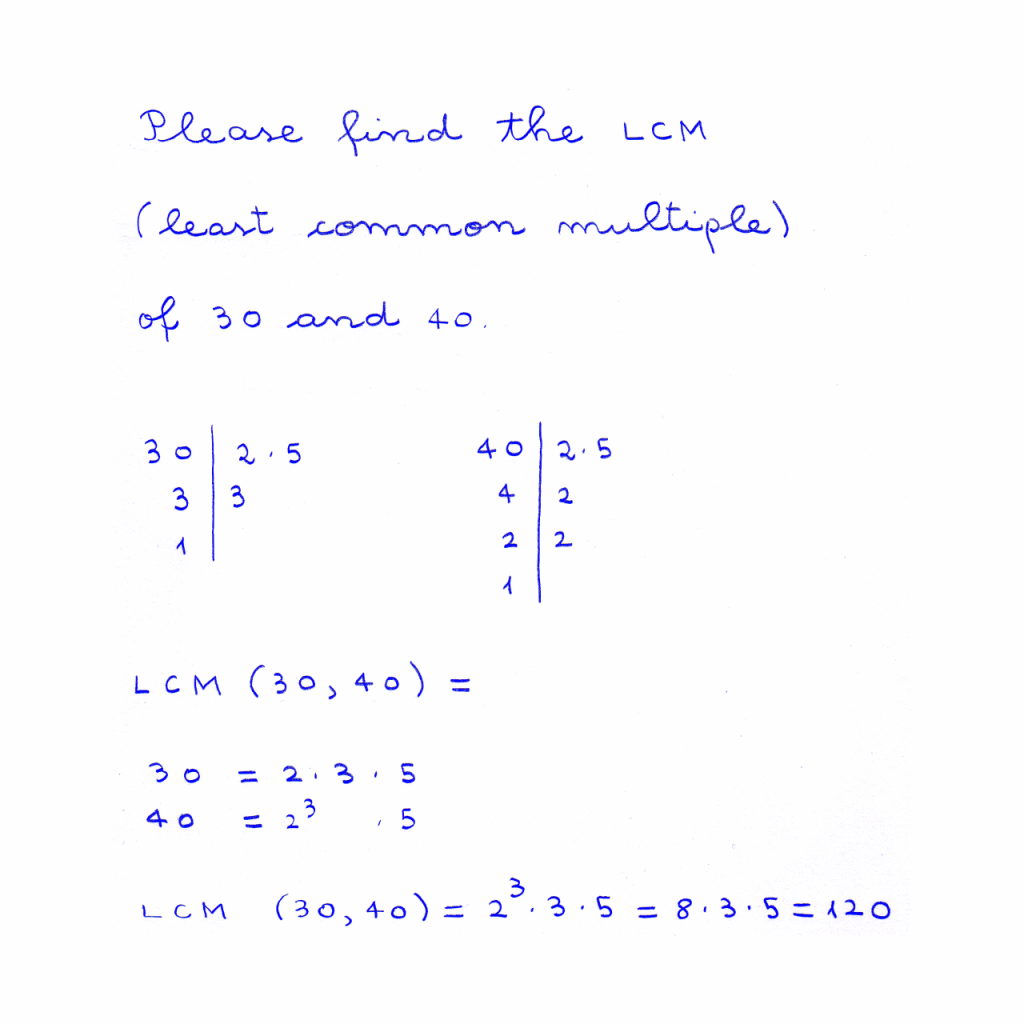 Please find the LCM
(least common multiple)
of 30 and 40.
30 | 2 · 5
3 | 3
1 |
40 | 2 · 5
4 | 2
2 | 2
1 |
LCM (30, 40) =
30 = 2 · 3 · 5
40 = 2³ · 5
LCM (30, 40) = 2³ · 3 · 5 = 8 · 3 · 5 = 120